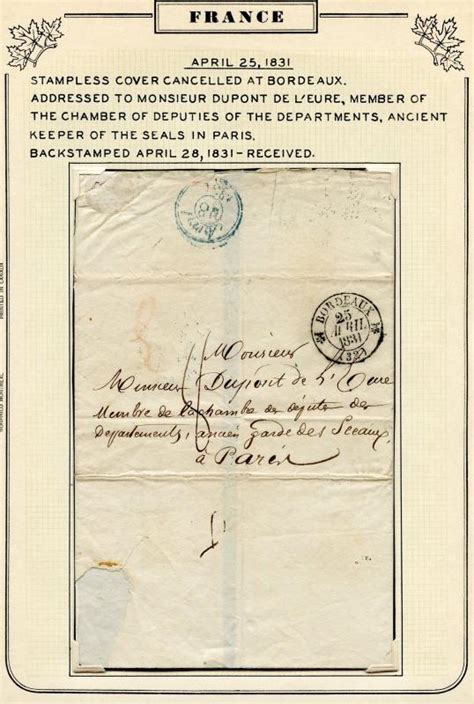 FRANCE
APRIL 25, 1831
STAMPLESS COVER CANCELLED AT BORDEAUX.
ADDRESSED TO MONSIEUR DUPONT DE L'EURE, MEMBER OF
THE CHAMBER OF DEPUTIES OF THE DEPARTMENTS, ANCIENT
KEEPER OF THE SEALS IN PARIS.
BACKSTAMPED APRIL 28, 1831-RECEIVED.
PRINTED IN CANADA
BORDEAUX
25
AVRIL
1831
(32)
Monsieur
Monsieur Dupont de l'Eure
Membre de la chambre des députés des
Départements, ancien garde des Sceaux
à Paris